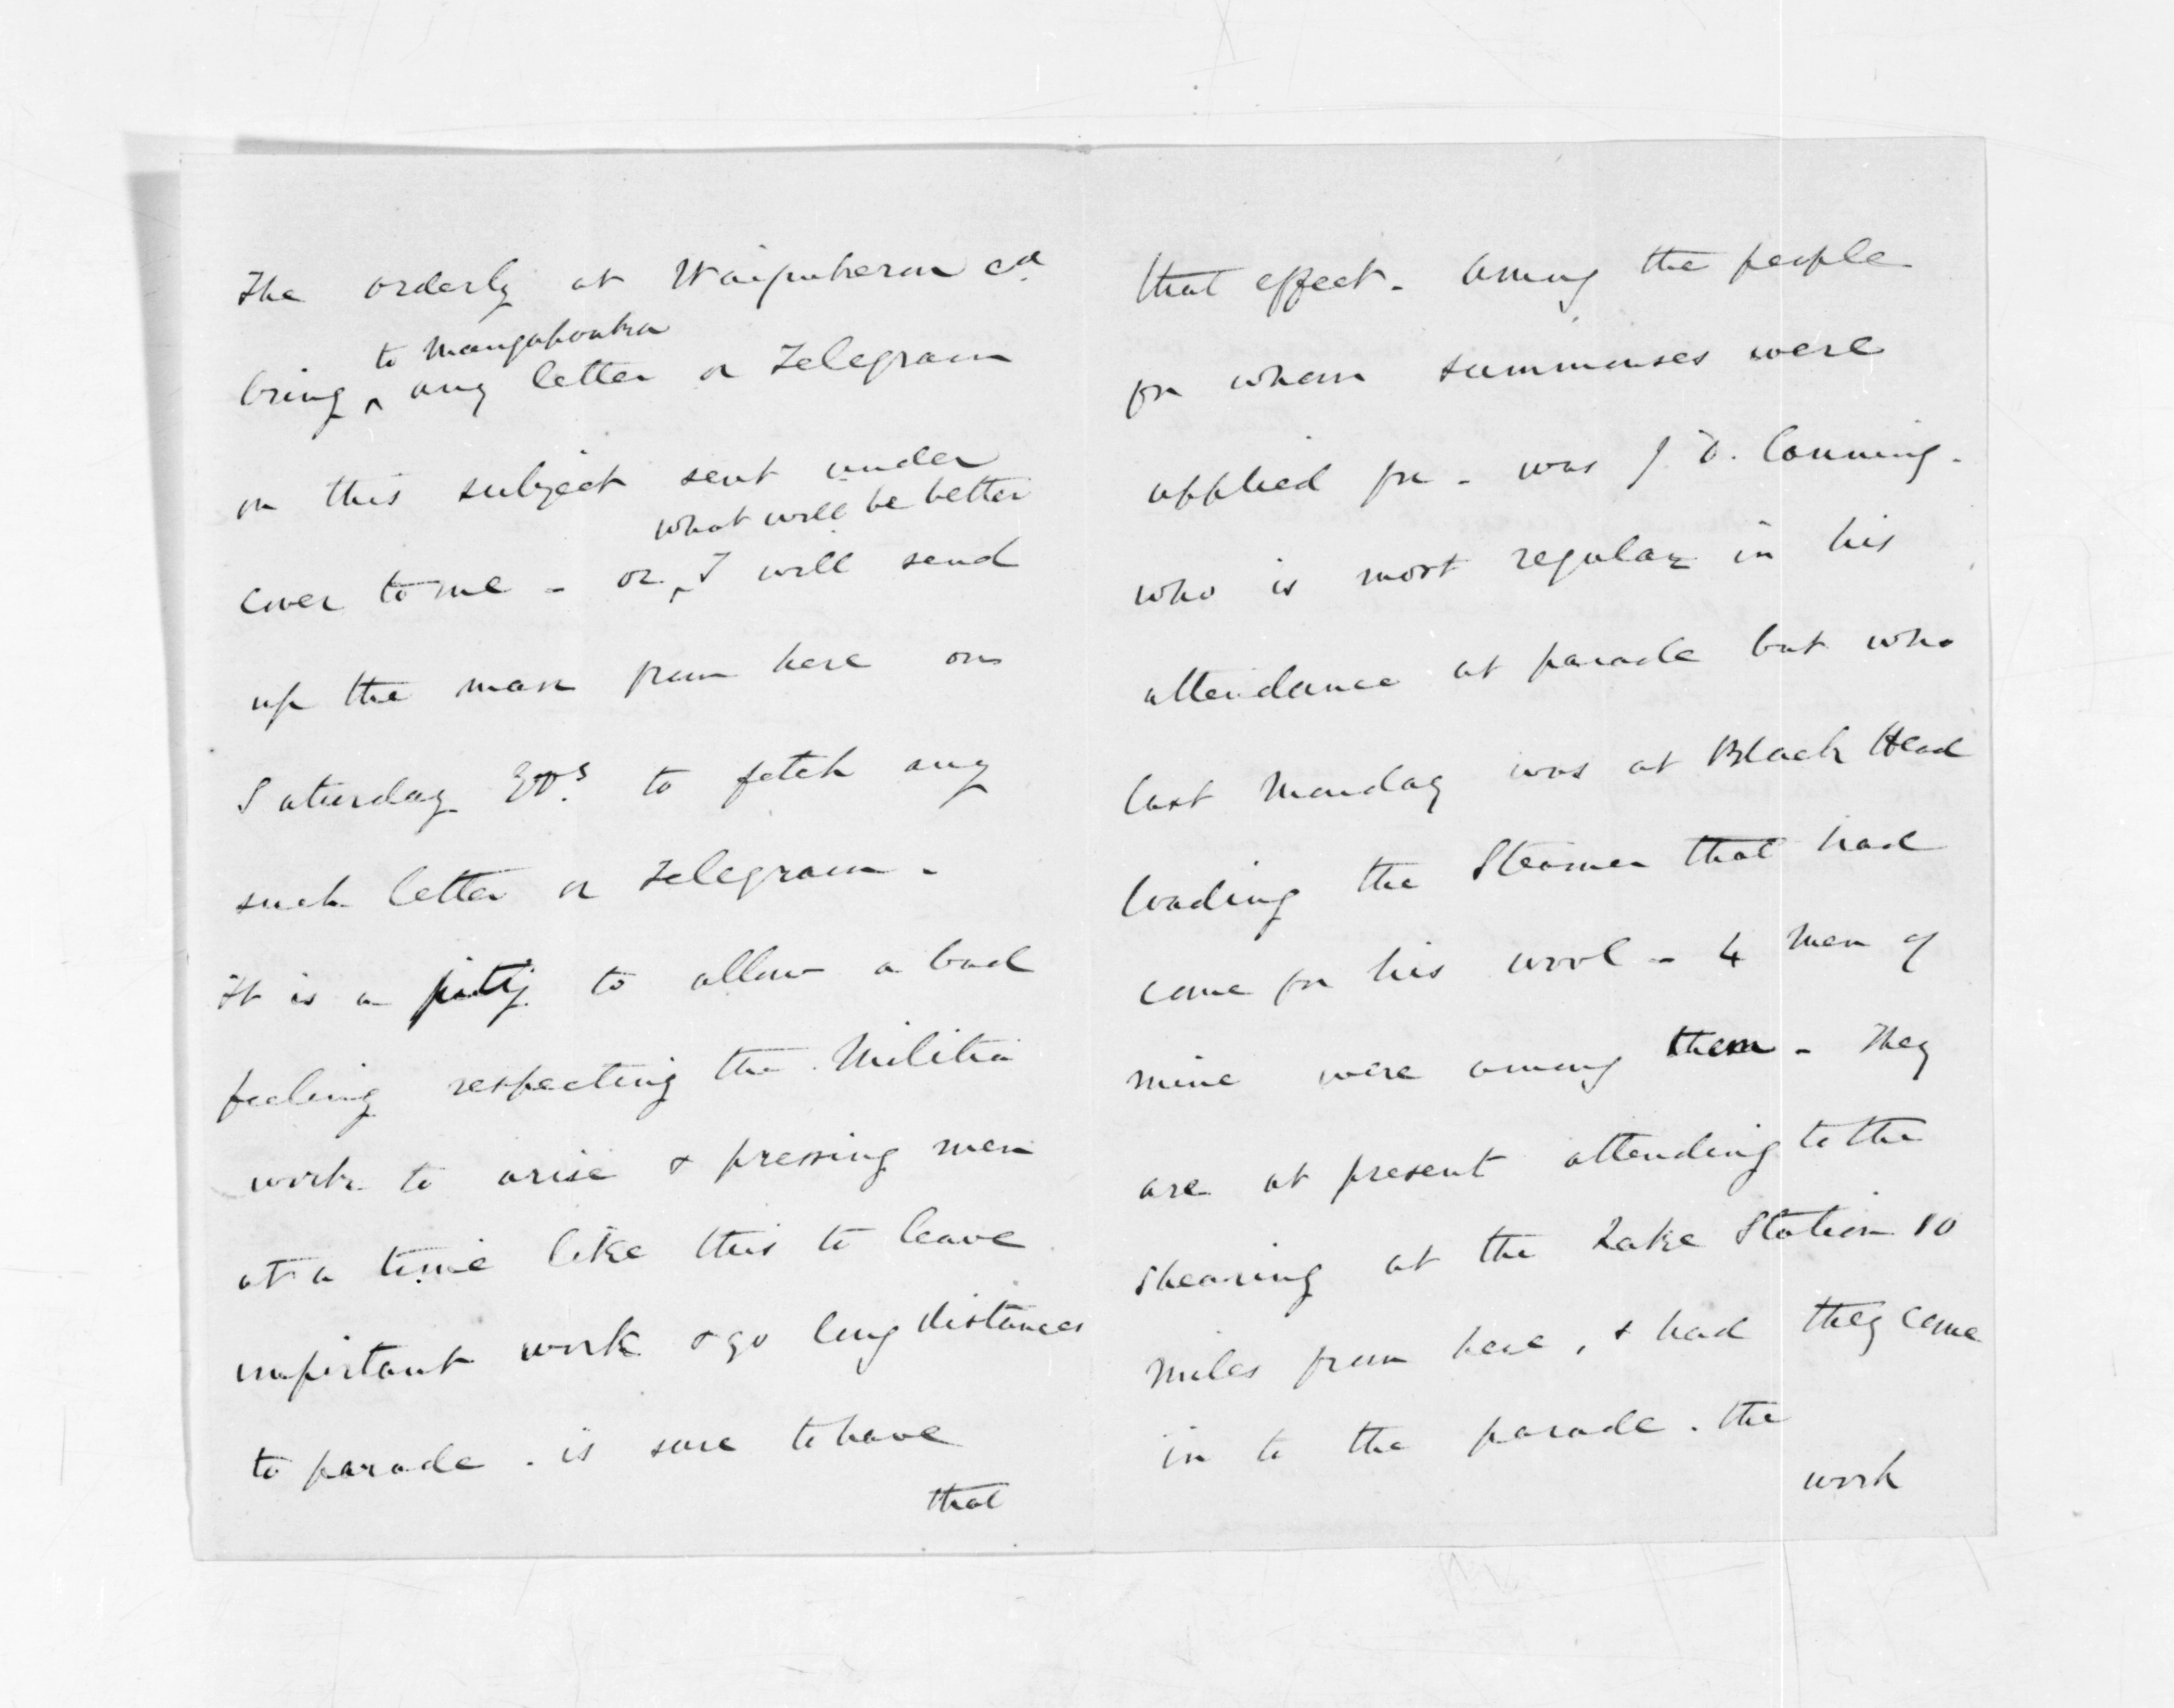 The orderly at Waipukurau cd.
to Mangakuaka
bring ^ any letter or Telegram
on this subject sent under
what will be better
cover to me - or ^ I will send
up the man from here on
Saturday to fetch any
such letter or Telegram -
It is a pity to allow a bad
feeling respecting the Militia
work to arise & pressing men
at a time like this to leave
important work & go long distances
to parade . is sure to have
that
that effect - Among the people
for whom summonses were
applied for - was J. D. Canning -
who is most regular in his
attendance at parade but who
last Monday was at Black Head
loading the Steamer that had
come for his wool - 4 men of
mine were among them - They
are at present attending to the
shearing at the Lake Station 10
miles from here , & had they come
in to the parade . the
work